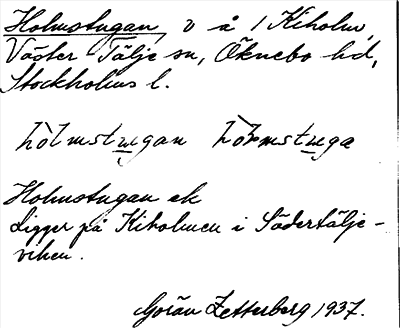 Holmstugan, v å / Kiholm,
Väster Tälje sn, Öknebo hd,
Stockholms l.
hòlmstugan hòlmstuga
Holmstugan ek
Ligger på Kiholmen i Södertälje-
viken.
Göran Zetterberg 1937.